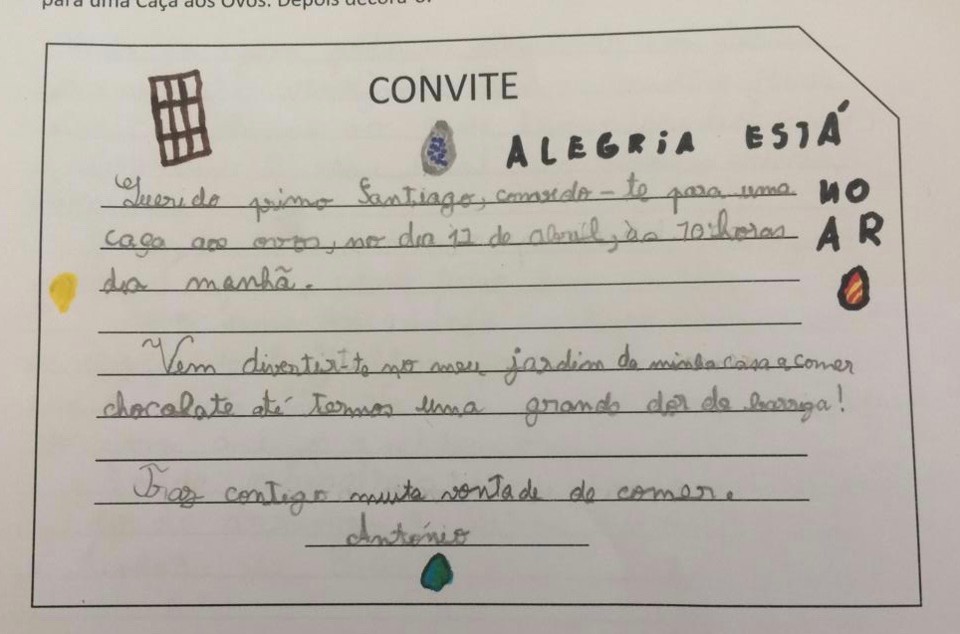 para uma Caça aos Ovos. Depois decora-o.
CONVITE
ALEGRIA ESTÁ
NO
AR
Querido primo Santiago, convido-te para uma
caça aos ovos, no dia 12 de abril, às 10 horas
da manhã.
Vem divertir-te no meu jardim da minha casa e comer
chocolate até termos uma grande dor de barriga!
Traz contigo muita vontade de comer.
António